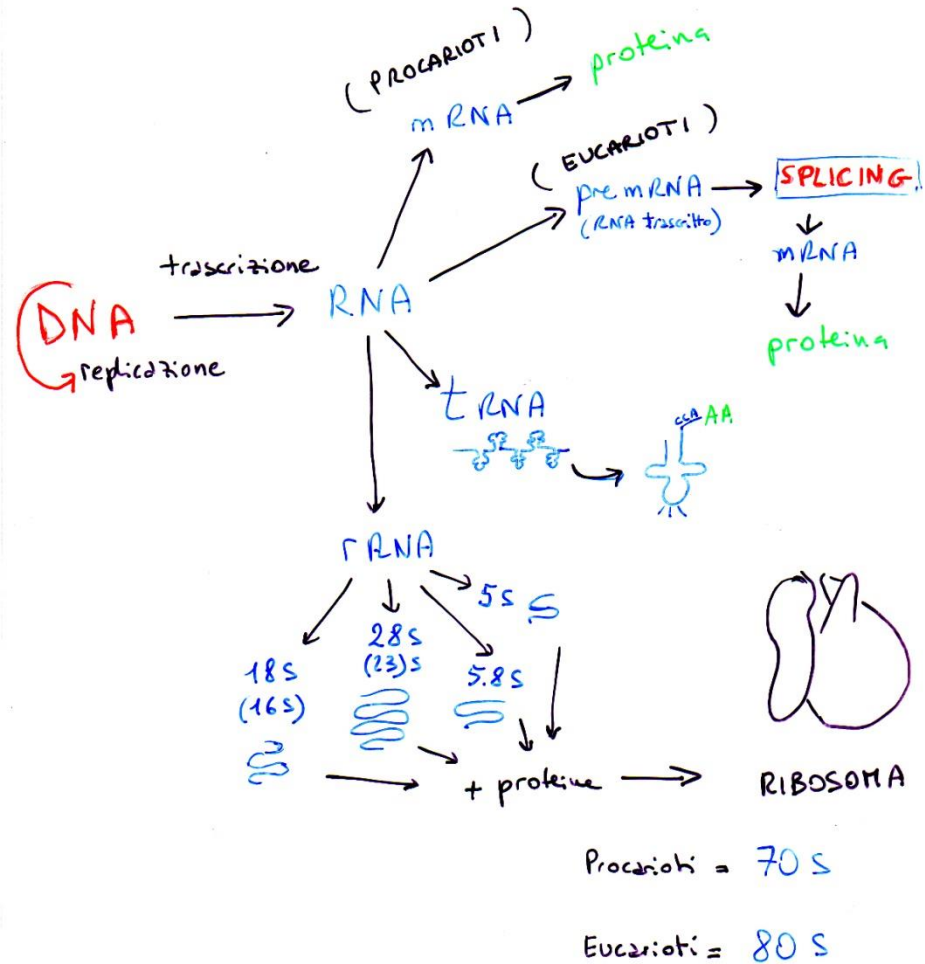 (PROCARIOTI)
mRNA
proteina
(EUCARIOTI)
premRNA
(RNA trascritto)
SPLICING
mRNA
proteina
trascrizione
DNA
RNA
replicazione
tRNA
CCA AA
rRNA
5s
28s
(23)s
18s
(16s)
5.8s
+ proteine
RIBOSOMA
Procarioti = 70 S
Eucarioti = 80 S